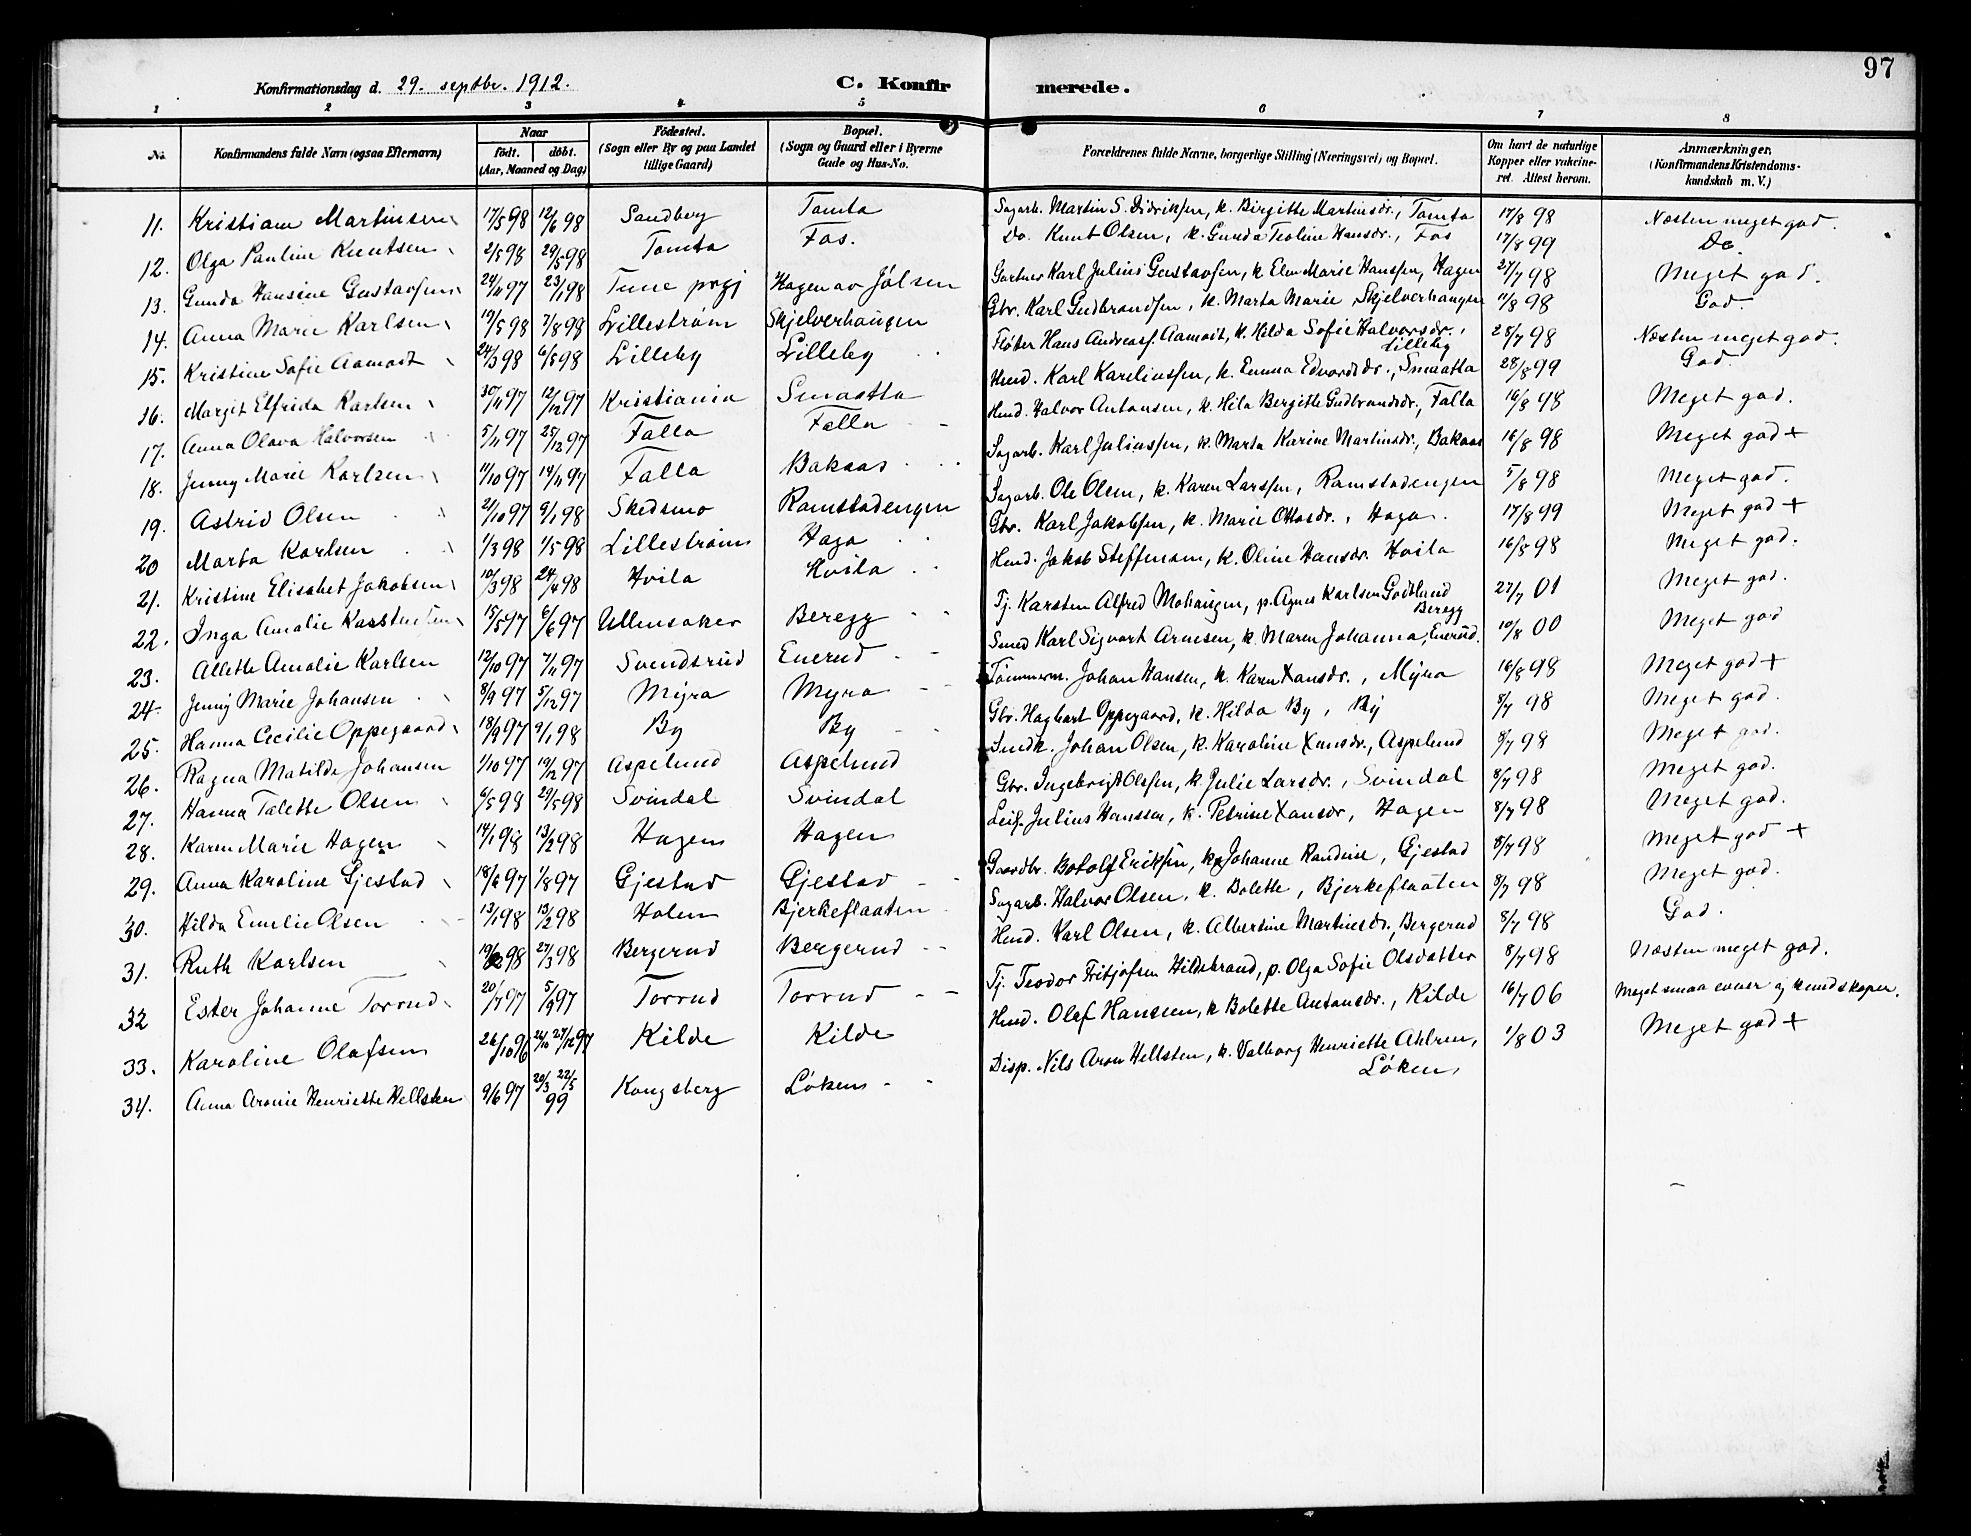 97
Konfirmationsdag d. 29. septbr. 1912. C. Konfirmerede.
1 2 3 4 5 6 7 8
No. Konfirmandens fulde Navn (ogsaa Efternavn) Naar født. døbt. (Aar, Maaned og Dag) Fødested. (Sogn eller By og paa Landet tillige Gaard) Bopæl. (Sogn og Gaard eller i Byerne Gade og Hus-No. Forældrenes fulde Navne, borgerlige Stilling (Næringsvei) og Bopæl. Om havt de naturlige Kopper eller vaccineret. Attest herom. Anmærkninger. (Konfirmandens Kristendomskundskab m. V.)
11. Kristiane Martinsen 17/5 98 12/6 98 Sandberg Tomta Sagarb. Martin S. Didriksen, k. Birgitte Martinsdr., Tomta 17/8 98 Næsten meget god.
12. Olga Pauline Knutsen 2/5 98 29/5 98 Tomta Fos. Do. Knut Olsen, k. Gunda Teoline Hansdr., Fos 17/8 99 Do
13. Gunda Hansine Gustavsen 24/11 97 23/1 98 Tune prgj Hagen av Jølsen Gartner Karl Julius Gustavsen, k. Elen Marie Hanssen, Hagen 27/7 98 Meget god.
14. Anna Marie Karlsen 19/5 98 7/8 98 Lillestrøm Skjelverhaugen Gbr. Karl Gudbrandsen, k. Marta Marie Skjelverhaugen 11/8 98 God.
15. Kristine Sofie Aamodt 24/3 98 6/5 98 Lilleby Lilleby Fløter Hans Andreass. Aamodt, k. Hilda Sofie Halvorsdr., Lilleby 25/7 98 Næsten meget god.
16. Margit Elfrida Karlsen 30/11 97 12/12 97 Kristiania Smaatta Hmd. Karl Kareliussen, k. Emma Edvardsdr., Smaatta 28/8 99 God.
17. Anna Olava Halvorsen 5/11 97 25/12 97 Falla Falla Hmd. Halvor Antonsen, k. Hila Bergitte Gudbrandsdr., Falla 16/8 98 Meget god.
18. Jenny Marie Karlsen 11/10 97 14/11 97 Falla Bakaas Sagarb. Karl Juliussen, k. Marta Karine Martinsdr., Bakaas 16/8 98 Meget god +
19. Astrid Olsen 21/10 97 9/1 98 Skedsmo Ramstadengen Sagarb. Ole Olsen, k. Karen Larssen, Ramstadengen 5/8 98 Meget god.
20 Marta Karlsen 1/3 98 1/5 98 Lillestrøm Haga Gbr. Karl Jakobsen, k. Marie Ottosdr., Haga. 17/8 99 Meget god +
21. Kristine Elisabet Jakobsen 10/3 98 24/4 98 Hvila Hvila Hmd. Jakob Steffensen, k. Oline Hansdr. Hvila 16/8 98 Meget god.
22. Inga Amalie Karstensen 15/5 97 6/6 97 Ullensaker Beregg Tj. Karsten Alfred Mohaugen, p. Agnes Karlsen Godtlund Beregg 27/7 01 Meget god.
23. Allette Amalie Karlsen 12/10 97 7/11 97 Svendsrud Enerud Smed Karl Sigvart Arnesen, k. Maren Johanna, Enerud. 10/8 00 Meget god
24. Jenny Marie Johansen 8/9 97 5/12 97 Myra Myra Tømmerm. Johan Hansen, k. Karen Hansdr., Myra 16/8 98 Meget god +
25. Hanna Cecilie Oppegaard 18/9 97 9/1 98 By By Gbr. Hagbart Oppegaard, k. Hilda By, By 8/7 98 Meget god.
26. Ragna Matilde Johansen 1/10 97 19/12 97 Aspelund Aspelund Smdk. Johan Olsen, k. Karoline Hansdr., Aspelund 8/7 98 Meget god.
27. Hanna Talette Olsen 6/5 98 29/5 98 Svindal Svindal Gbr. Ingebrigt Olsen, k. Julie Larsdr., Svindal 8/7 98 Meget god.
28. Karen Marie Hagen 14/1 98 13/2 98 Hagen Hagen Leif. Julius Hanssen, k. Petrine Hansdr, Hagen 8/7 98 Meget god.
29. Anna Karoline Gjestad 18/6 97 1/8 97 Gjestad Gjestad Gaardbr. Botolf Eriksen, k. Johanne Randine, Gjestad 8/7 98 Meget god +
30. Hilda Emelie Olsen 13/1 98 13/2 98 Holen Bjerkeflaaten Sagarb. Halvor Olsen, k. Bolette, Bjerkeflaaten 8/7 98 Meget god.
31. Ruth Karlsen 19/2 98 27/3 98 Bergerud Bergerud Hmd. Karl Olsen, k. Albertine Martinsdr., Bergerud 8/7 98 God.
32 Ester Johanne Torrud 20/7 97 5/9 97 Torrud Torrud Tj. Teodor Fritjofsen Hildebrand, p. Olga Sofie Olsdatter 8/7 98 Næsten meget god.
33. Karoline Olafsen 26/10 96 24/10 27/12 97 Kilde Kilde Hmd. Olaf Hanssen, k Bolette Antonsdr., Kilde 16/7 06 Meget smaa evner og kundskaper.
34. Anna Aronie Henriette Hellsten 9/6 97 20/3 22/5 99 Kongsberg Løken Disp. Nils Aron Hellsten, k. Valborg Henriette Ahlren, Løken, 1/8 03 Meget god +